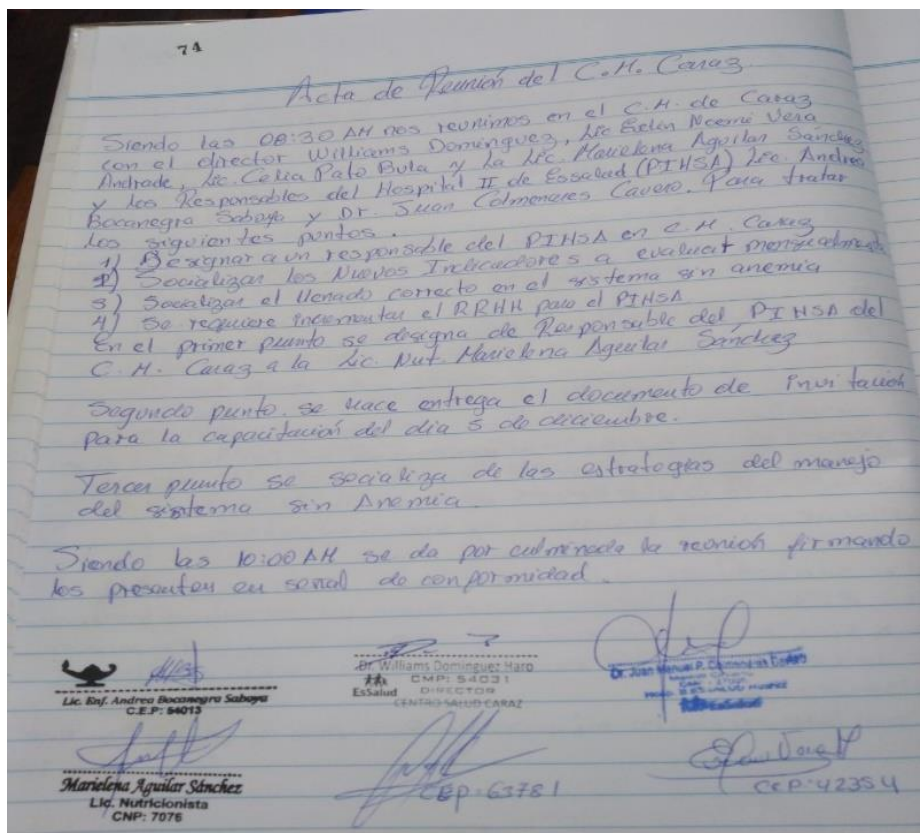 74
Acta de Reunión del C.M. Caraz
Siendo las 08:30 AM nos reunimos en el C.M. de Caraz
con el director Williams Dominguez, Lic Evelin Noemí Vera
Andrade, Lic. Celia Pato Bula y La Lic. Marielena Aguilar Sánchez
y los Responsables del Hospital II de Essalud (PIHSA) Lic. Andrea
Bocanegra Saboya y Dr. Juan Colmenares Cavero. Para tratar
los siguientes puntos.
1) Designar a un responsable del PIHSA en C.M. Caraz
2) Socializar los Nuevos Indicadores a evaluar mensualmente
3) Socalizar el llenado correcto en el sistema sin anemia
4) Se requiere incrementar el RRHH para el PIHSA
En el primer punto se designa de Responsable del PIHSA del
C.M. Caraz a la Lic. Nut. Marielena Aguilar Sánchez
Segundo punto. se hace entrega el documento de invitación
para la capacitación del dia 5 de diciembre.
Tercer punto se socializa de las estrategias del manejo
del sistema sin Anemia.
Siendo las 10:00 AM se da por culminada la reunión firmando
los presentes en señal de conformidad.
Lic. Enf. Andrea Bocanegra Saboya
C.E.P: 54013
Dr. Williams Dominguez Haro
CMP: 54031
EsSalud DIRECTOR
CENTRO SALUD CARAZ
Dr. Juan Manuel P.
EsSalud
Marielena Aguilar Sánchez
Lic. Nutricionista
CNP: 7076
CEP: 63781
CEP: 42354